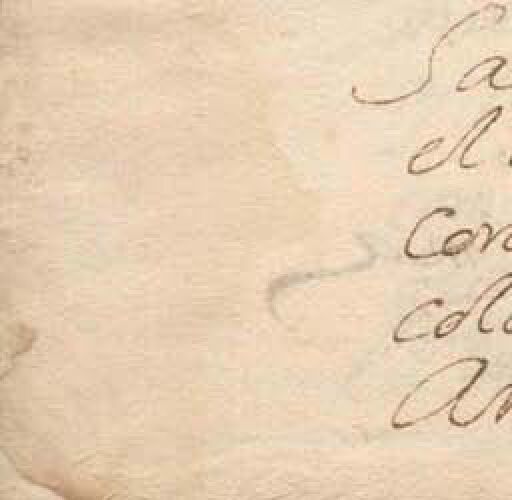 Sa
el
Con
colo
An